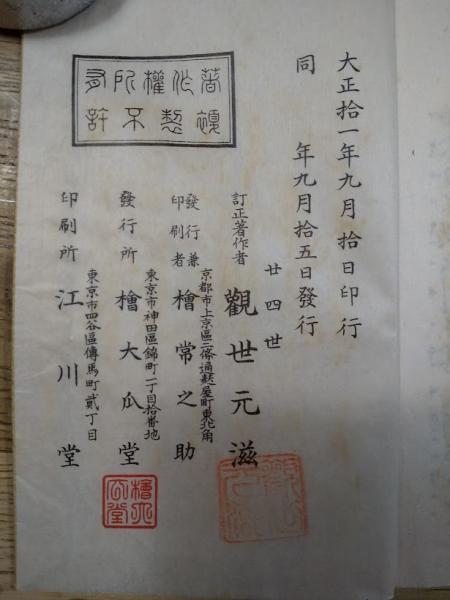 大正拾一年九月拾日印行
同　　年九月拾五日發行
廿四世
訂正著作者　觀世元滋
京都市上京區二條通麩屋町東北角
發行兼印刷者　檜常之助
東京市神田區錦町二丁目拾番地
發行所　檜大瓜堂
東京市四谷區傳馬町貳丁目
印刷所　江川堂
著作權所有
複製不許
檜大瓜堂